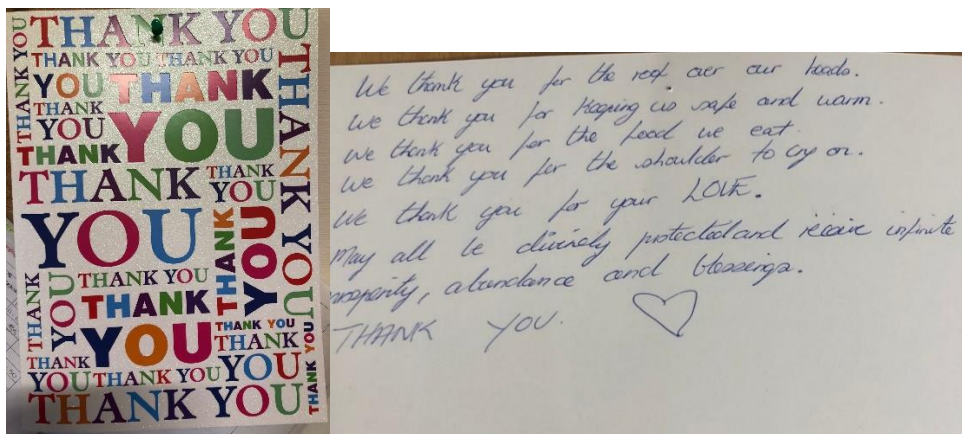 THANK YOU
THANK YOU
THANK YOU THANK YOU
YOU THANK
THANK
YOU YOU
THANK
THANK THANK
YOU
YOU
THANK YOU
THANK YOU
THANK
YOU
THANK YOU
THANK YOU
THANK
YOU
THANK YOU
THANK
THANK YOU
YOU THANK YOU
THANK YOU
THANK YOU
We thank you for the roof over our heads.
We thank you for keeping us safe and warm.
We thank you for the food we eat.
We thank you for the shoulder to cry on.
We thank you for your LOVE.
May all be divinely protected and receive infinite
prosperity, abundance and blessings.
THANK YOU.